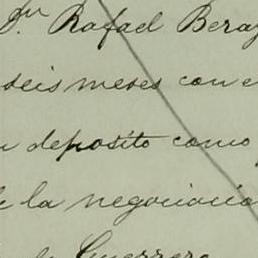 Dn. Rafael Beraz
seis meses con e
n deposito como
e la negociacio
Guerrero